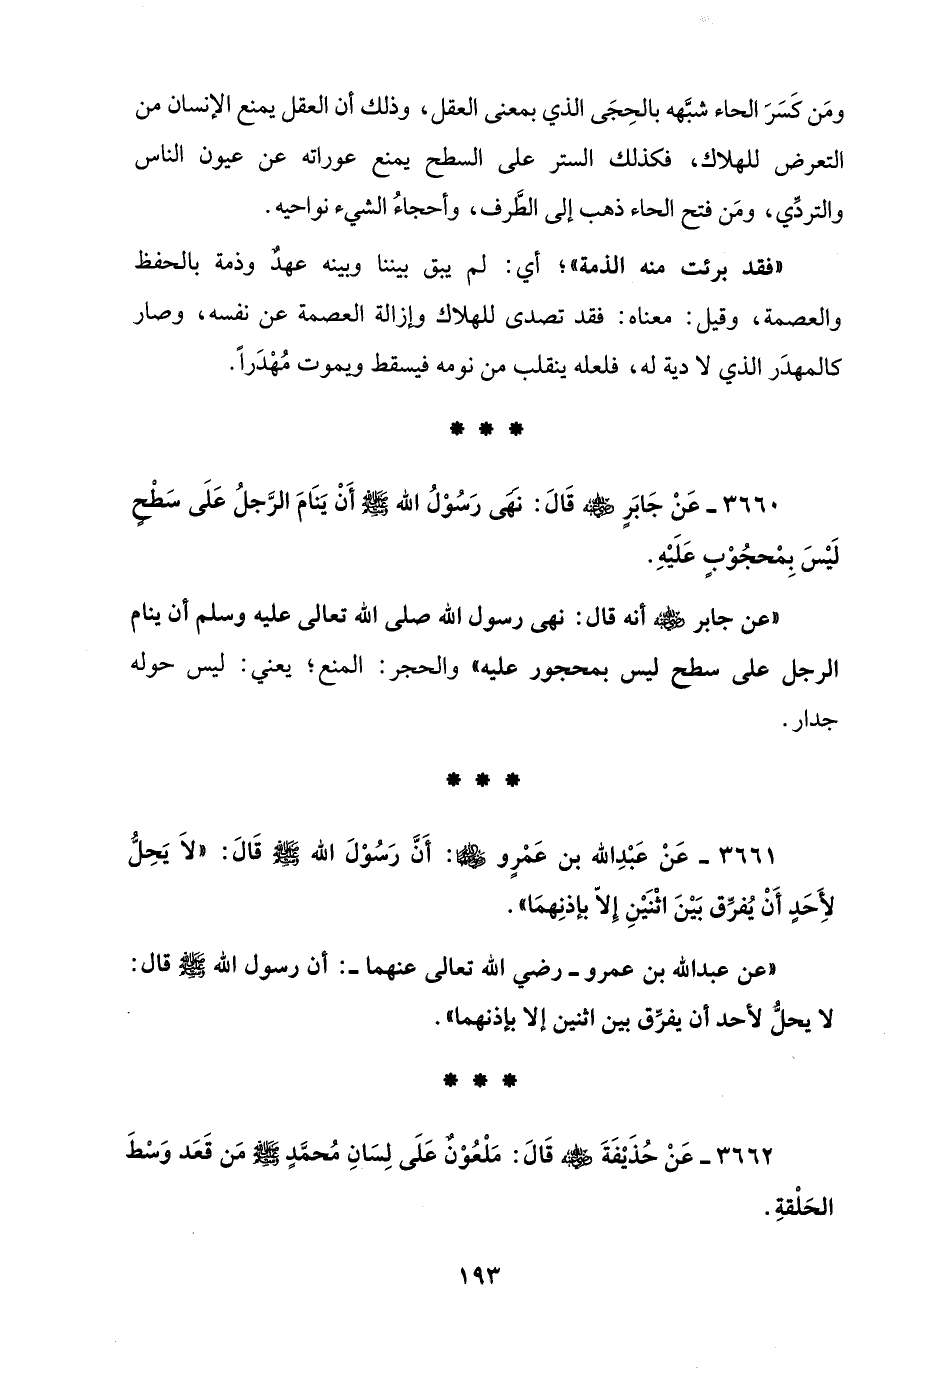 ومَن كَسَرَ الحاء شبَّهه بالحِجَى الذي بمعنى العقل، وذلك أن العقل يمنع الإنسان من
التعرض للهلاك، فكذلك الستر على السطح يمنع عوراته عن عيون الناس
والتردِّي، ومَن فتح الحاء ذهب إلى الطَّرف، وأحجاءُ الشيء نواحيه.
«فقد برئت منه الذمة»؛ أي: لم يبق بيننا وبينه عهدٌ وذمة بالحفظ
والعصمة، وقيل: معناه: فقد تصدى للهلاك وإزالة العصمة عن نفسه، وصار
كالمهدَر الذي لا دية له، فلعله ينقلب من نومه فيسقط ويموت مُهْدَراً.
* * *
٣٦٦٠ ـ عَنْ جَابَرٍ ﷺ قَالَ: نَهَى رَسُوْلُ الله ﷺ أَنْ يَنَامَ الرَّجلُ عَلَى سَطْحٍ
لَيْسَ بِمْحجُوْبٍ عَلَيْهِ.
«عن جابر رضي الله عنه أنه قال: نهى رسول الله صلى الله تعالى عليه وسلم أن ينام
الرجل على سطح ليس بمحجور عليه» والحجر: المنع؛ يعني: ليس حوله
جدار.
* * *
٣٦٦١ ـ عَنْ عَبْدِالله بن عَمْرٍو رضي الله عنهما: أَنَّ رَسُوْلَ الله ﷺ قَالَ: «لاَ يَحِلُّ
لأَِحَدٍ أَنْ يُفرِّق بَيْنَ اثْنَيْنِ إِلاّ بإذنِهمَا».
«عن عبدالله بن عمرو ـ رضي الله تعالى عنهما ـ: أن رسول الله ﷺ قال:
لا يحلُّ لأحد أن يفرِّق بين اثنين إلا بإذنهما».
* * *
٣٦٦٢ ـ عَنْ حُذَيْفَةَ رضي الله عنه قَالَ: مَلْعُوْنٌ عَلَى لِسَانِ مُحمَّدٍ ﷺ مَن قَعَد وَسْطَ
الحَلْقةِ.
١٩٣